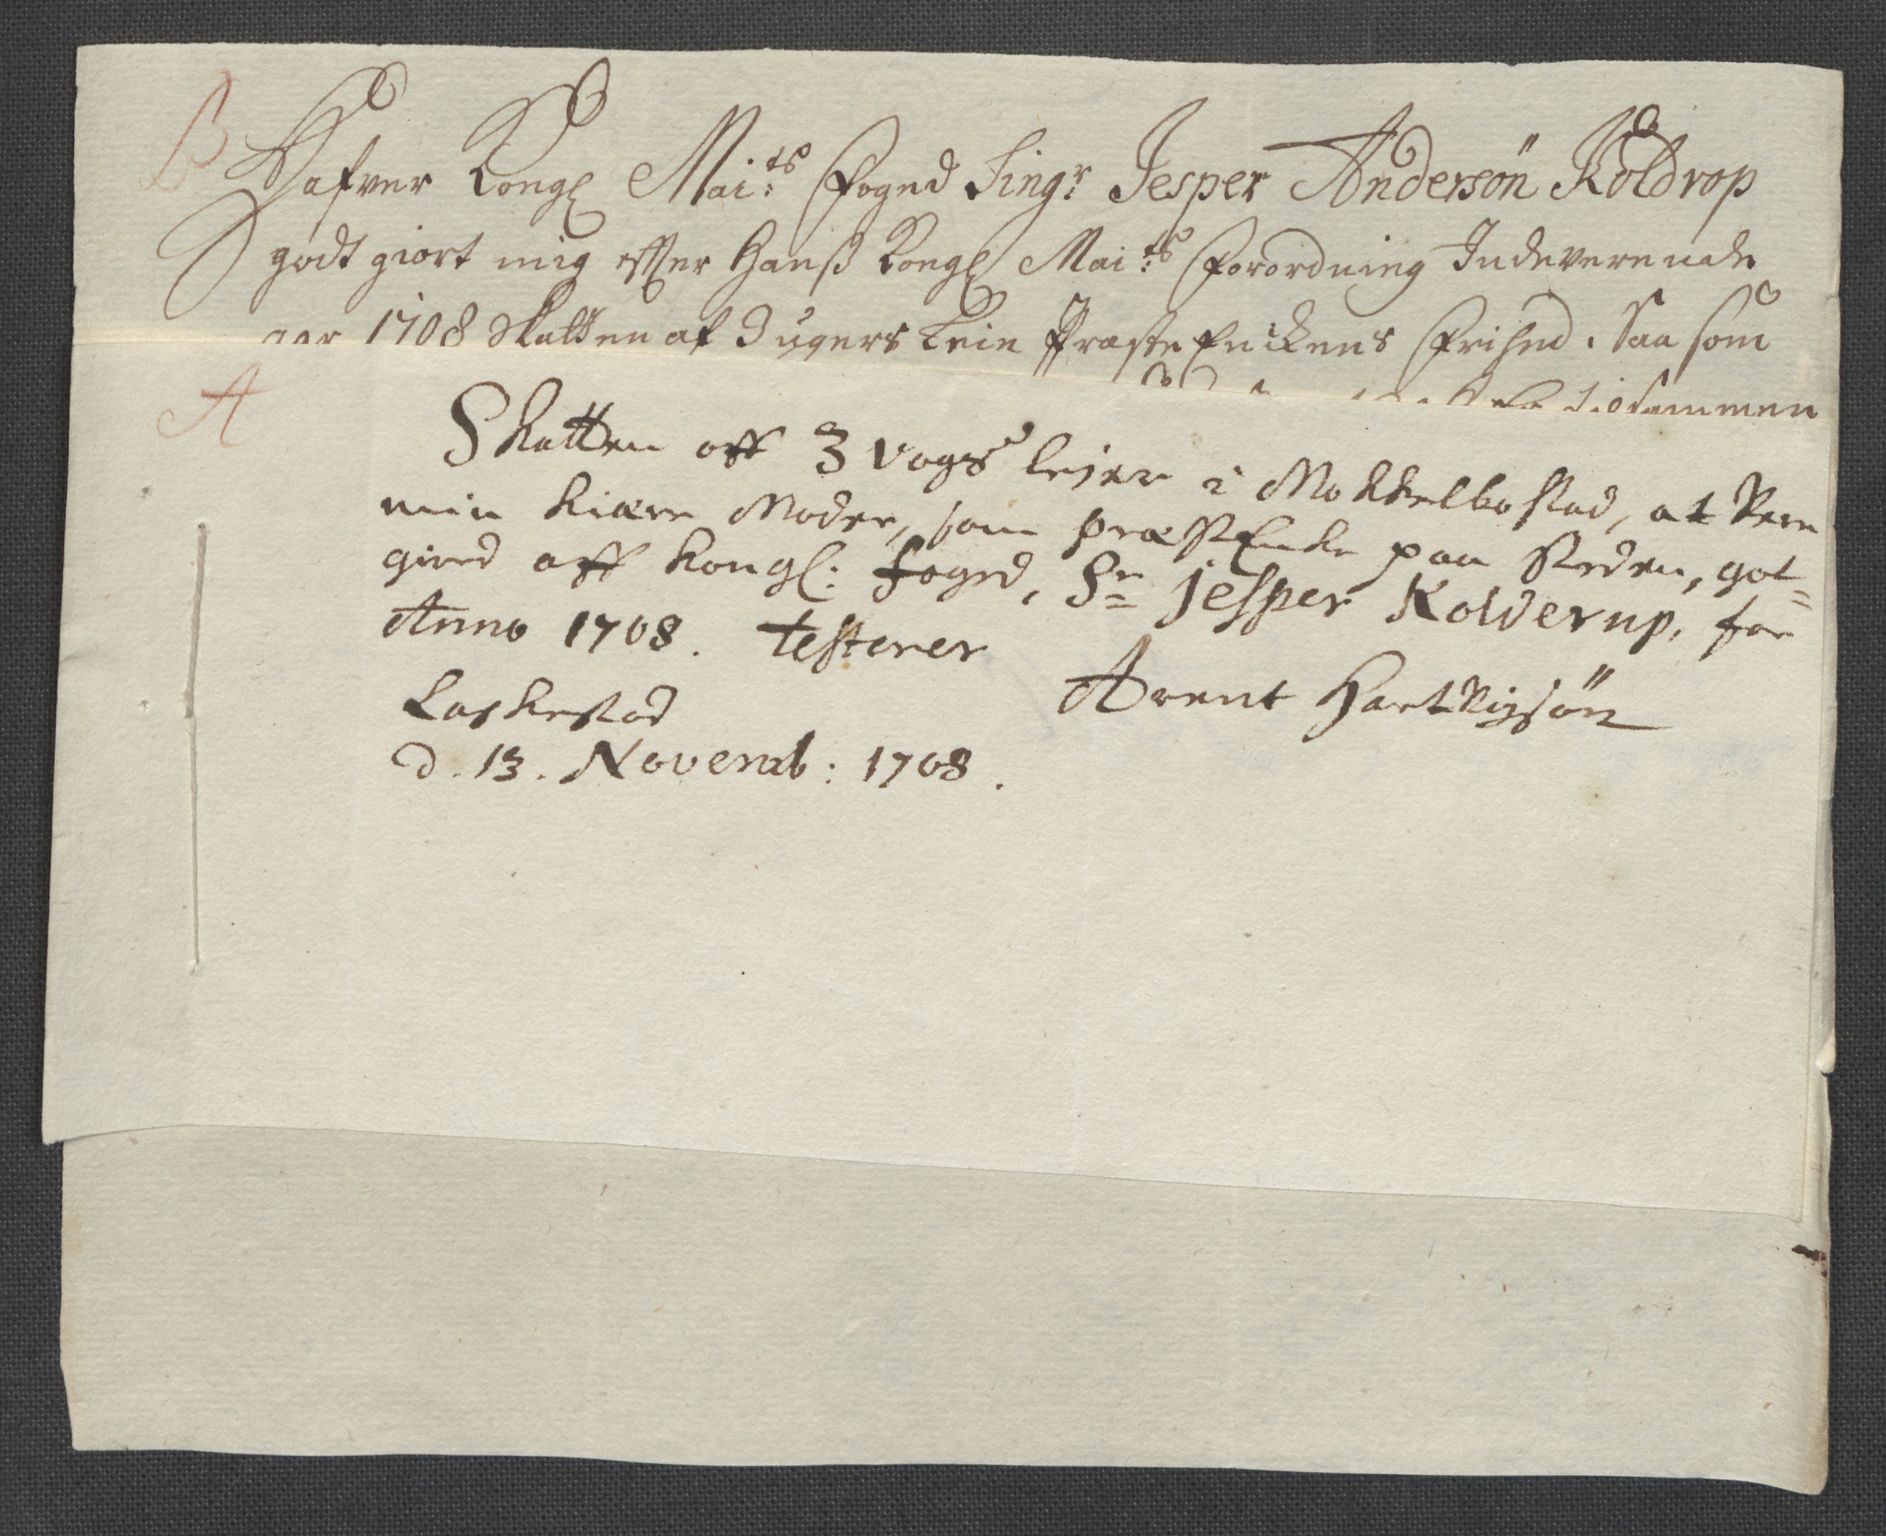 B
Hafver Kongl Mai:ts Foged Sing:r Jesper Andersön Koldrop
godt giort mig effter Hanß Kongl Mai:ts Forordning Indeverende
aar 1708 Skatten af 3 vgers Leie Præste Enckens Frihed. Saa som
tilsammen
A
Skatten off 3 vogs leier i Mokkelbostad, at Vere
min kiære Moder, som præstEncke paa Steden, got=
giord aff kongl: foged, Sr Jesper Kolderup, for
Anno 1708. testerer
Arent Hartvigsön
Laskestad
d. 13. Novemb: 1708.